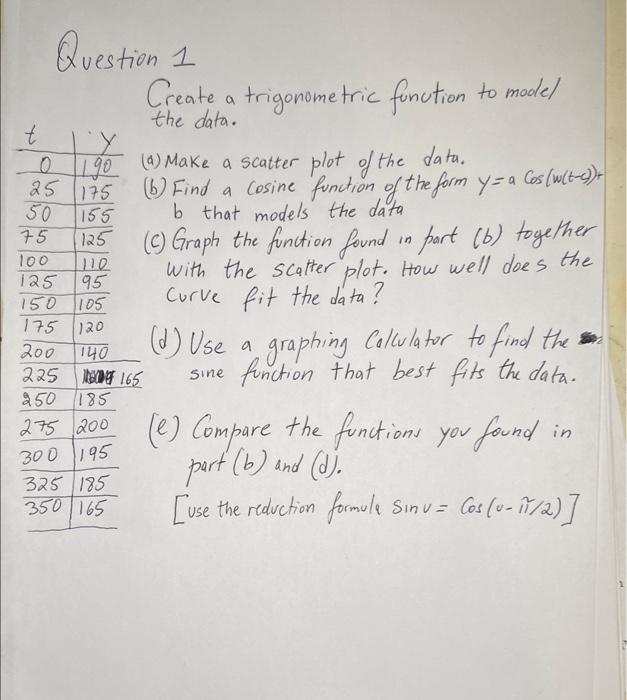 Question 1
Create a trigonometric function to model
the data.
t y
0 190
25 175
50 155
75 125
100 110
125 95
150 105
175 120
200 140
225 165
250 185
275 200
300 195
325 185
350 165
(a) Make a scatter plot of the data.
(b) Find a Cosine function of the form y = a Cos(w(t-c))+
b that models the data
(c) Graph the function found in part (b) together
with the scatter plot. How well does the
Curve fit the data?
(d) Use a graphing Calculator to find the
sine function that best fits the data.
(e) Compare the functions you found in
part (b) and (d).
[use the reduction formula Sin u = Cos(u - π/2)]